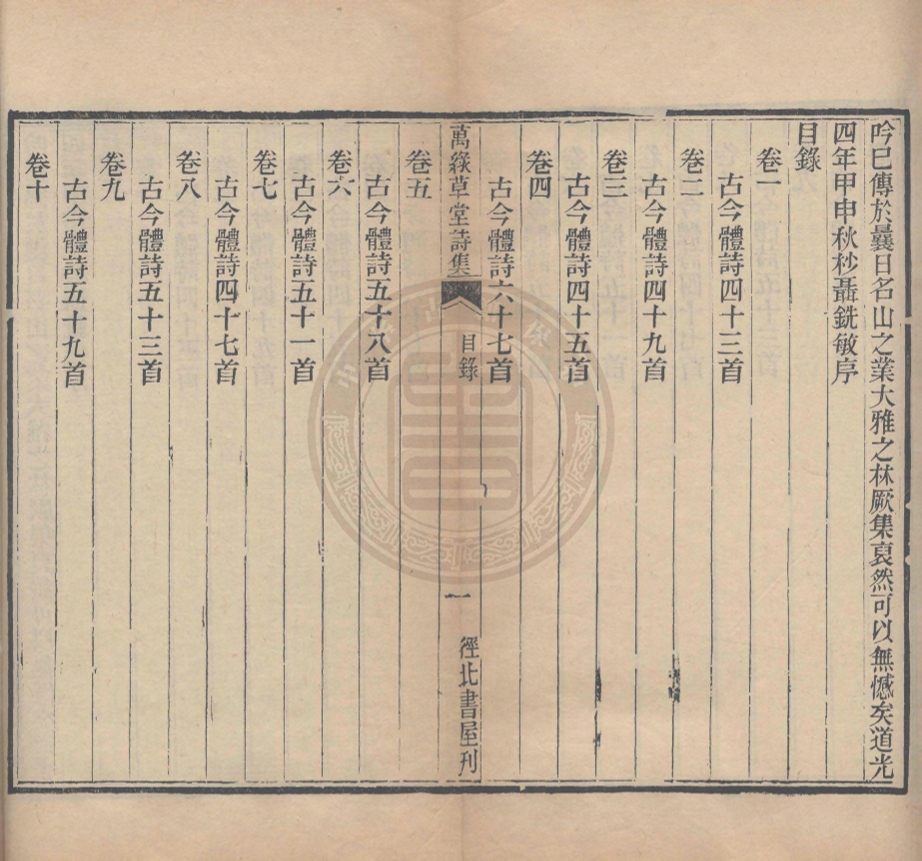 吟已傳於曩日名山之業大雅之林厥集裒然可以無憾矣道光
四年甲申秋杪聶銑敏序
目錄
卷一
古今體詩四十三首
卷二
古今體詩四十九首
卷三
古今體詩四十五首
卷四
古今體詩六十七首
萬綠草堂詩集
目錄
一
徑北書屋刊
卷五
古今體詩五十八首
卷六
古今體詩五十一首
卷七
古今體詩四十七首
卷八
古今體詩五十三首
卷九
古今體詩五十九首
卷十